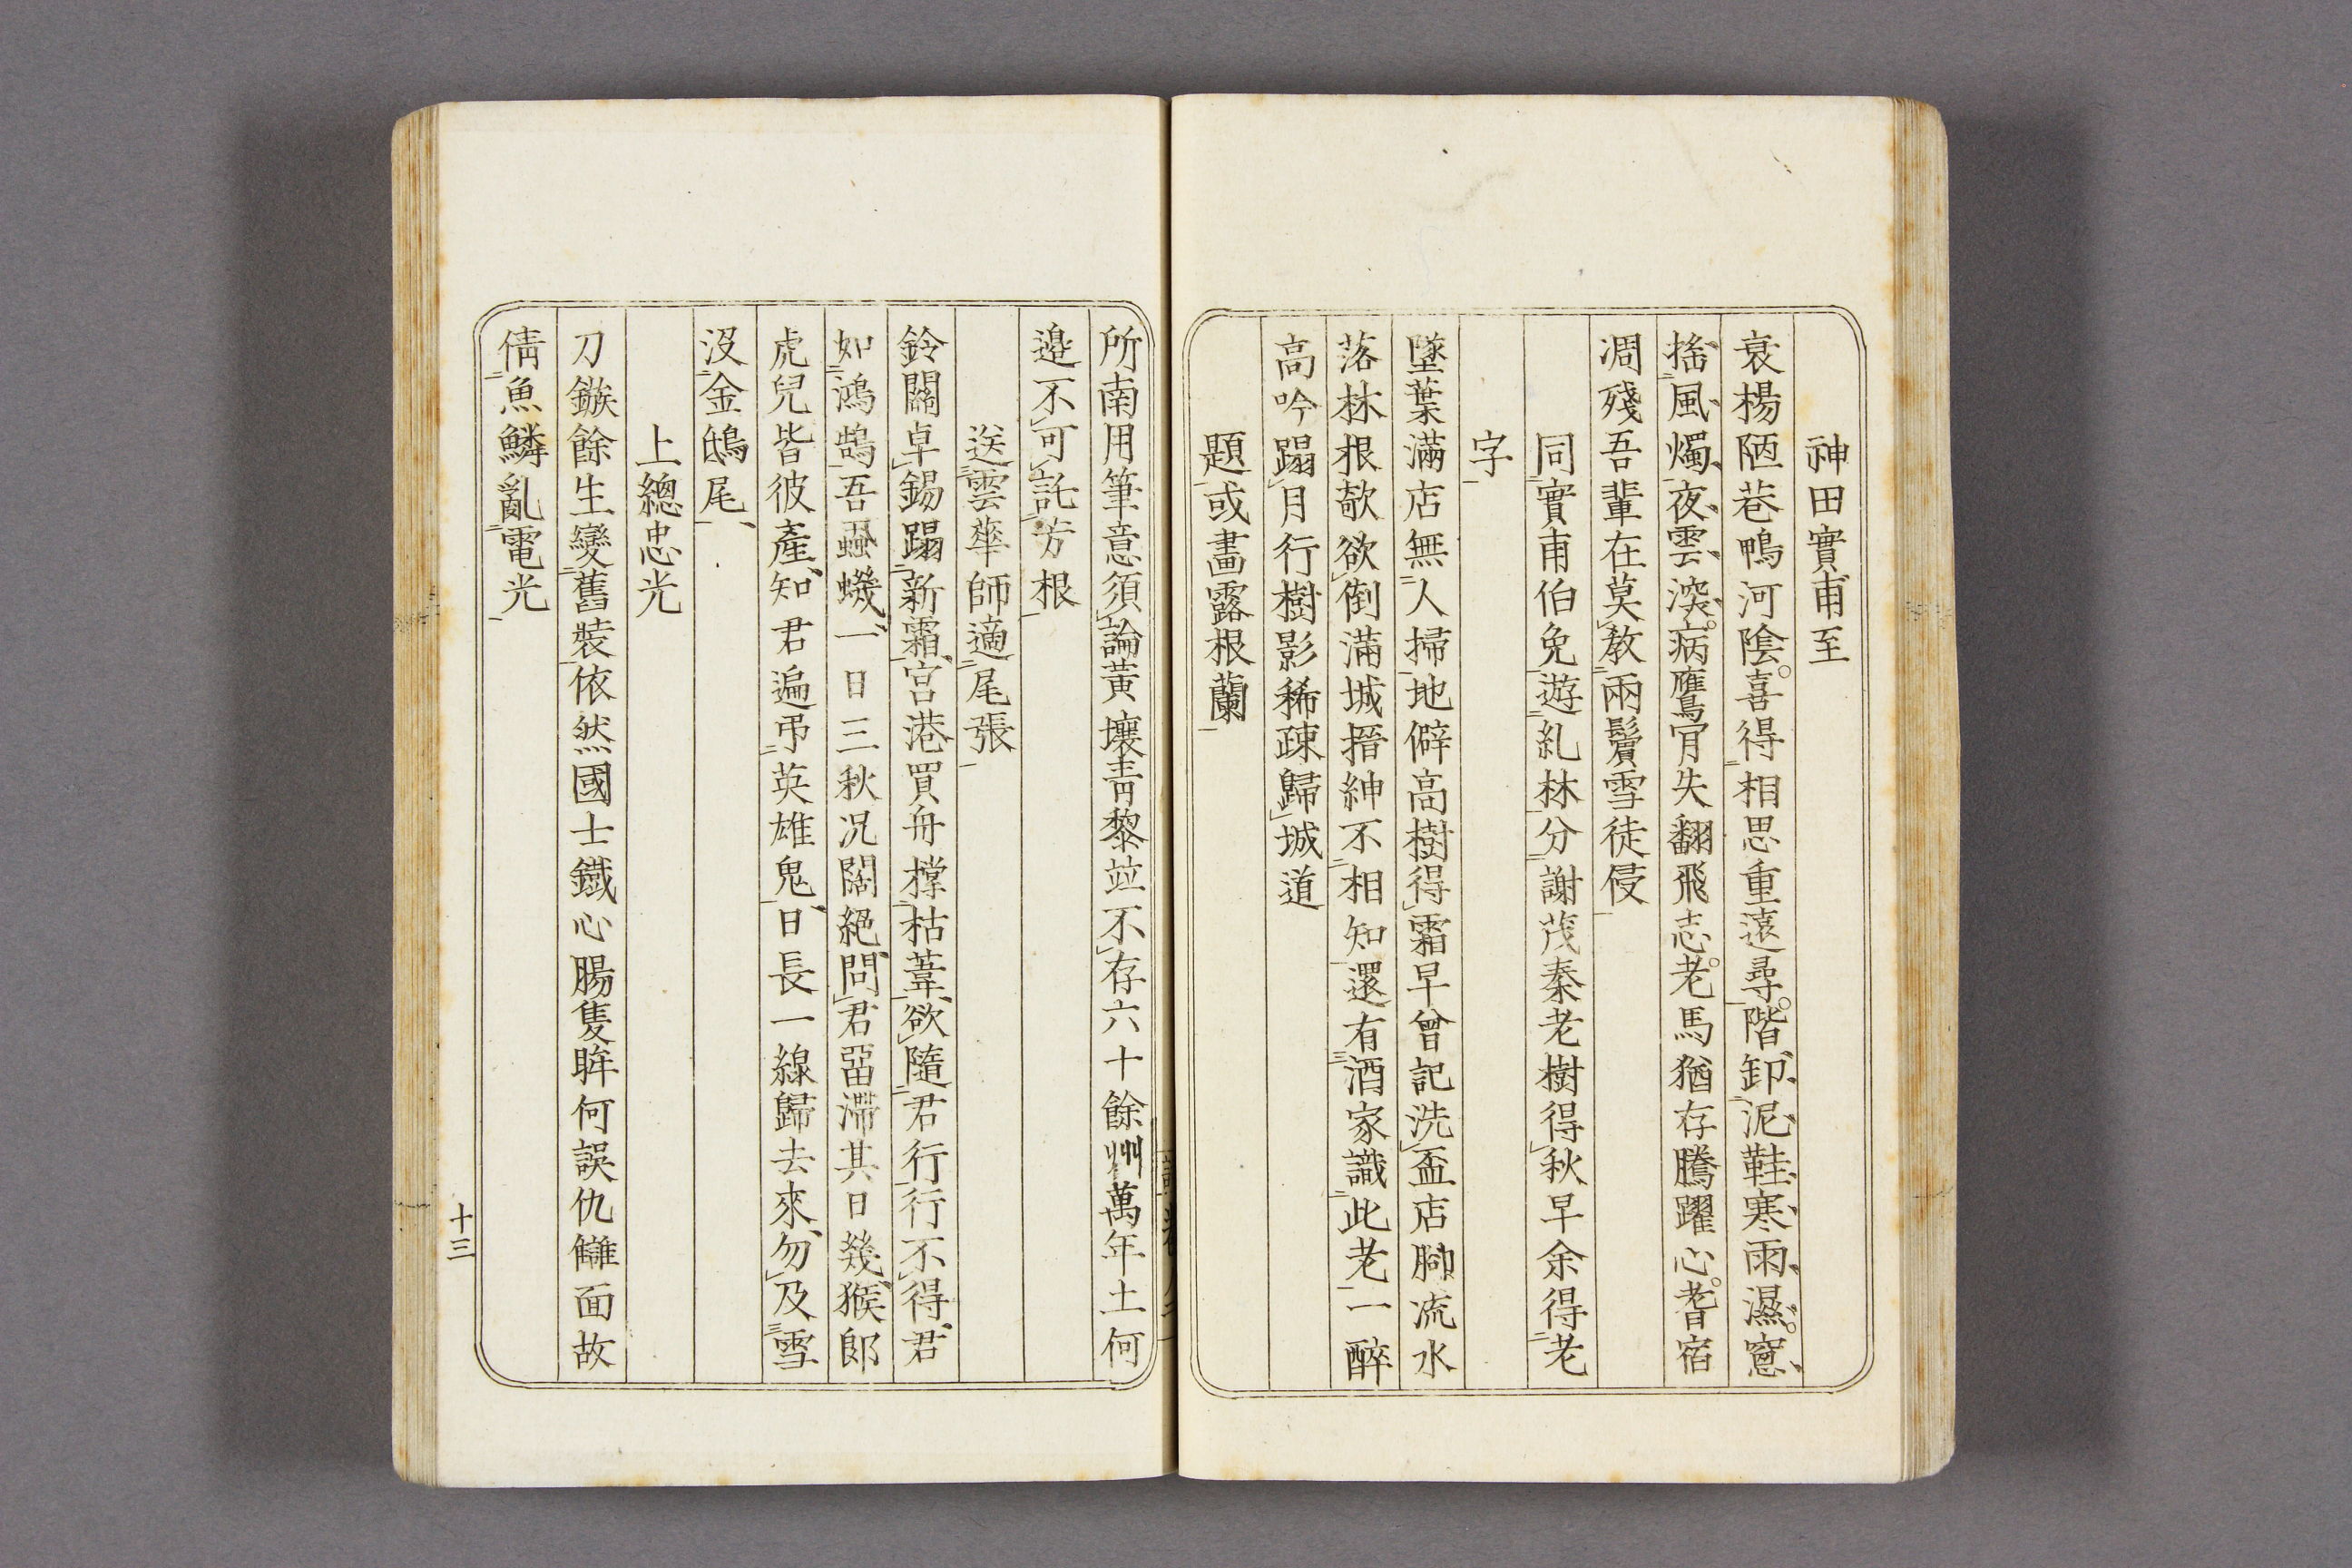 神田實甫至
衰楊陋巷鴨河陰喜得相思重遠尋階卸泥鞋寒雨濕窓
搖風燭夜雲深病鷹宵失翻飛志老馬猶存騰躍心耆宿
凋殘吾輩在莫敎兩鬢雪徒侵
同實甫伯免遊糺林分謝茂秦老樹得秋早余得老
字
墜葉滿店無人掃地僻高樹得霜早曾記洗盃店脚流水
落林根欹欲倒滿城搢紳不相知還有酒家識此老一醉
高吟蹋月行樹影稀疎歸城道
題或畫露根蘭
所南用筆意須論黃壤靑黎竝不存六十餘州萬年土何
邉不可託芳根
送雲華師適尾張
鈴關卓錫蹋新霜宮港買舟撑枯葦欲隨君行行不得君
如鴻鵠吾蝨蟣一日三秋况闊絕問君畱滯其日幾猴郎
虎兒皆彼產知君遍弔英雄鬼日長一線歸去來勿及雪
沒金鴟尾
上總忠光
刀鏃餘生變舊裝依然國士鐵心腸隻眸何誤仇讎面故
倩魚鱗亂電光
十三